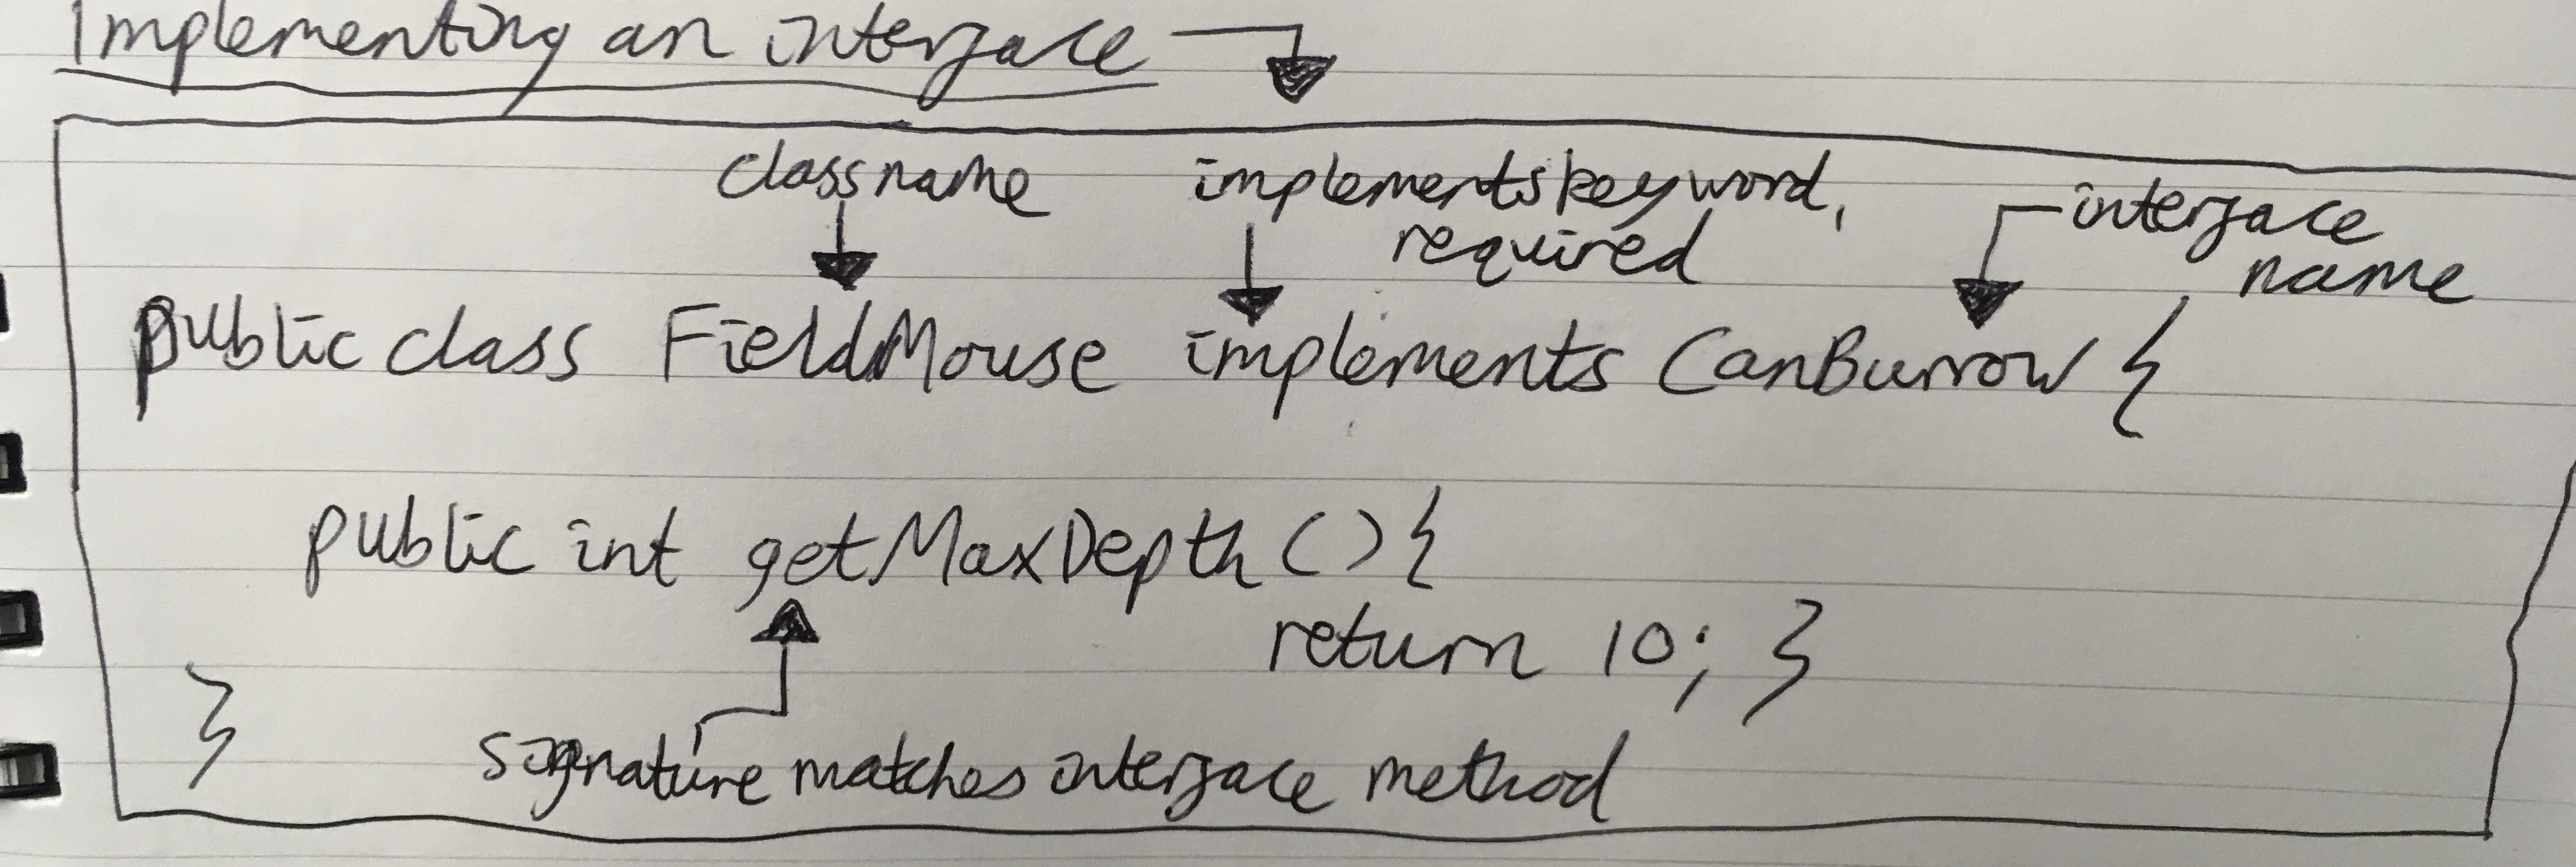 Implementing an interface
class name
implements keyword,
required
interface
name
public class FieldMouse implements CanBurrow {
public int getMaxDepth () {
return 10; }
}
signature matches interface method